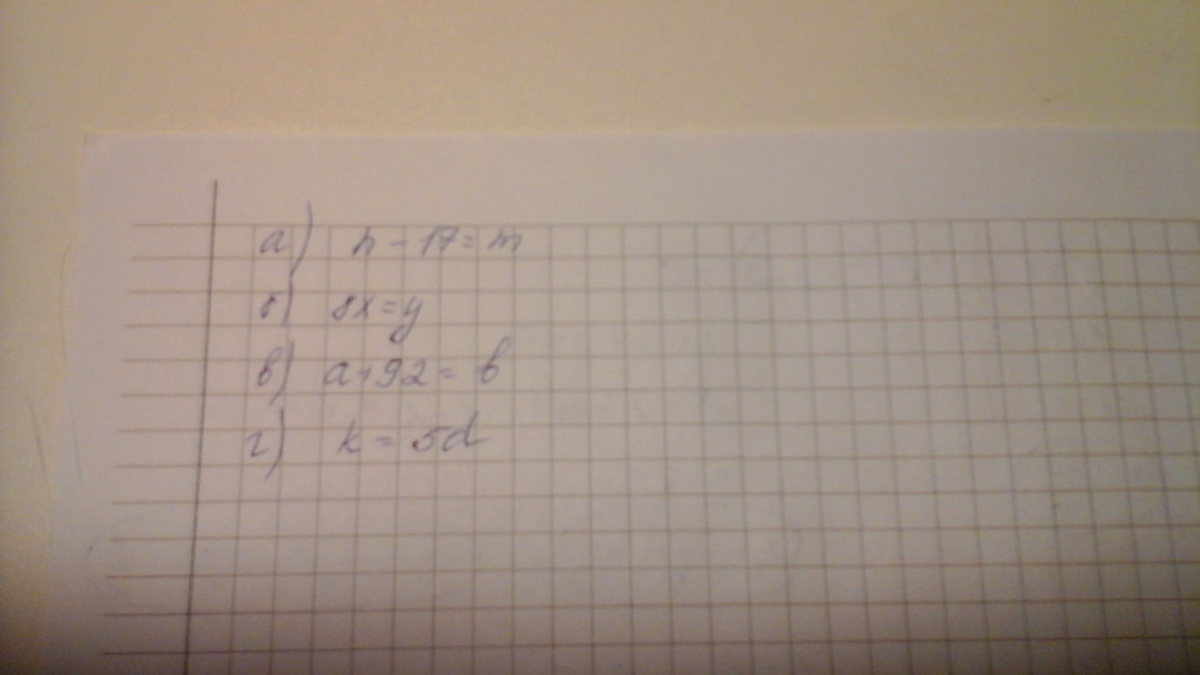 а) n - 17 = m
б) 8x = y
в) a + 92 = b
г) k = 5d